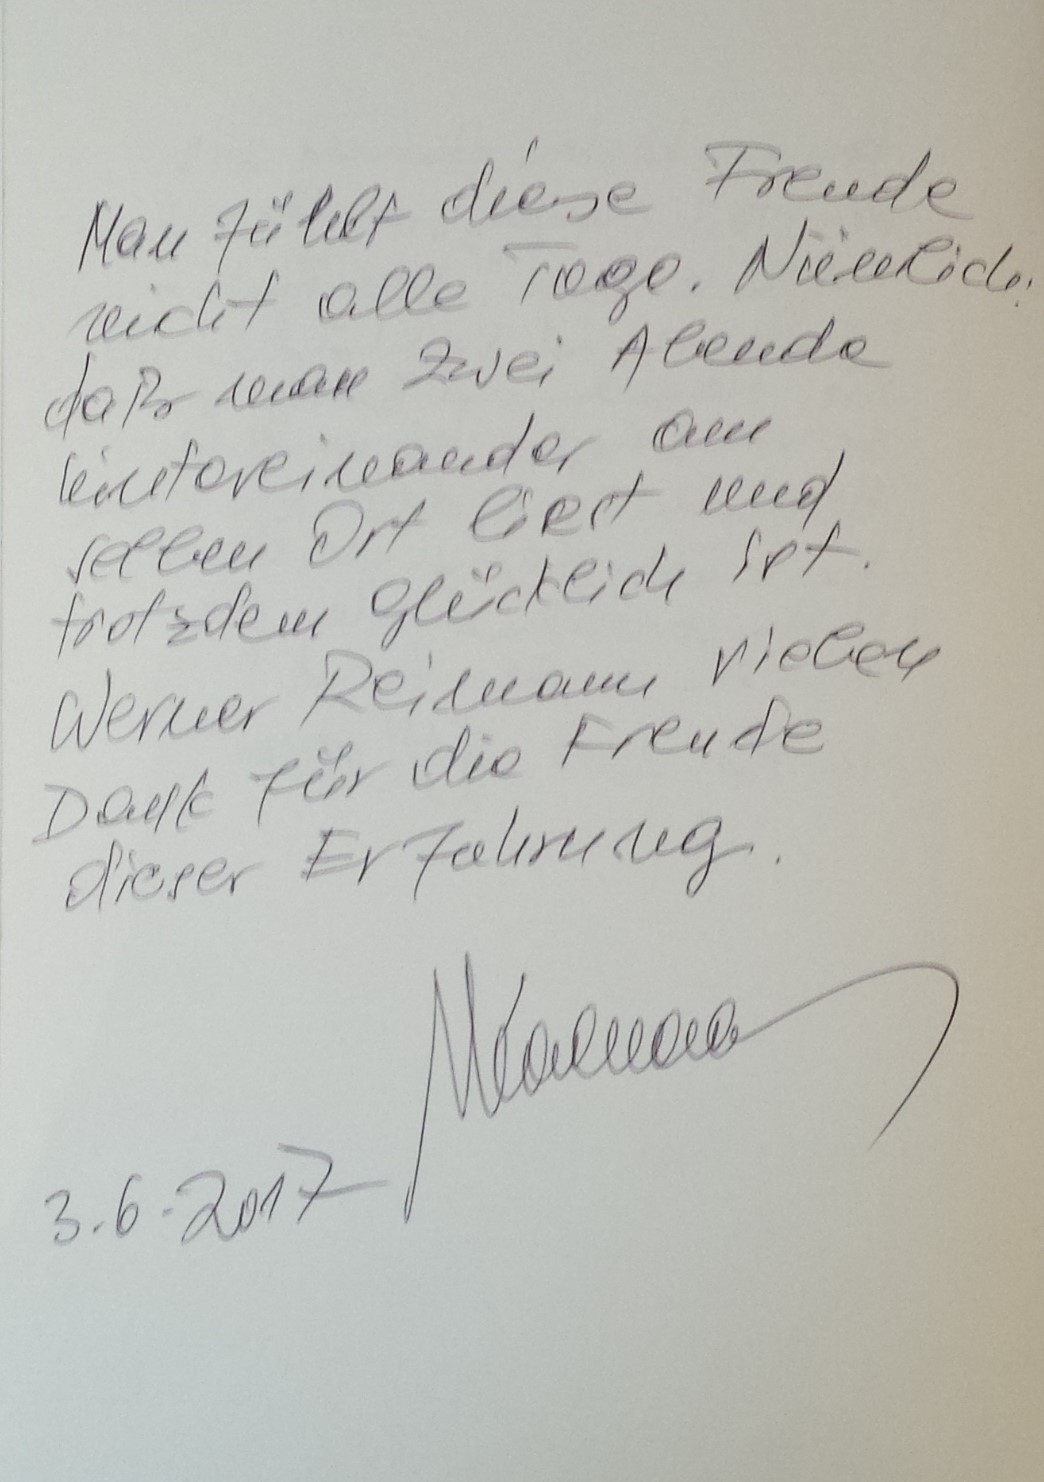 Man fühlt diese Freude
nicht alle Tage. Nämlich:
daß man zwei Abende
hintereinander am
selben Ort liest und
trotzdem glücklich ist.
Werner Reimann vielen
Dank für die Freude
dieser Erfahrung.
3.6.2017